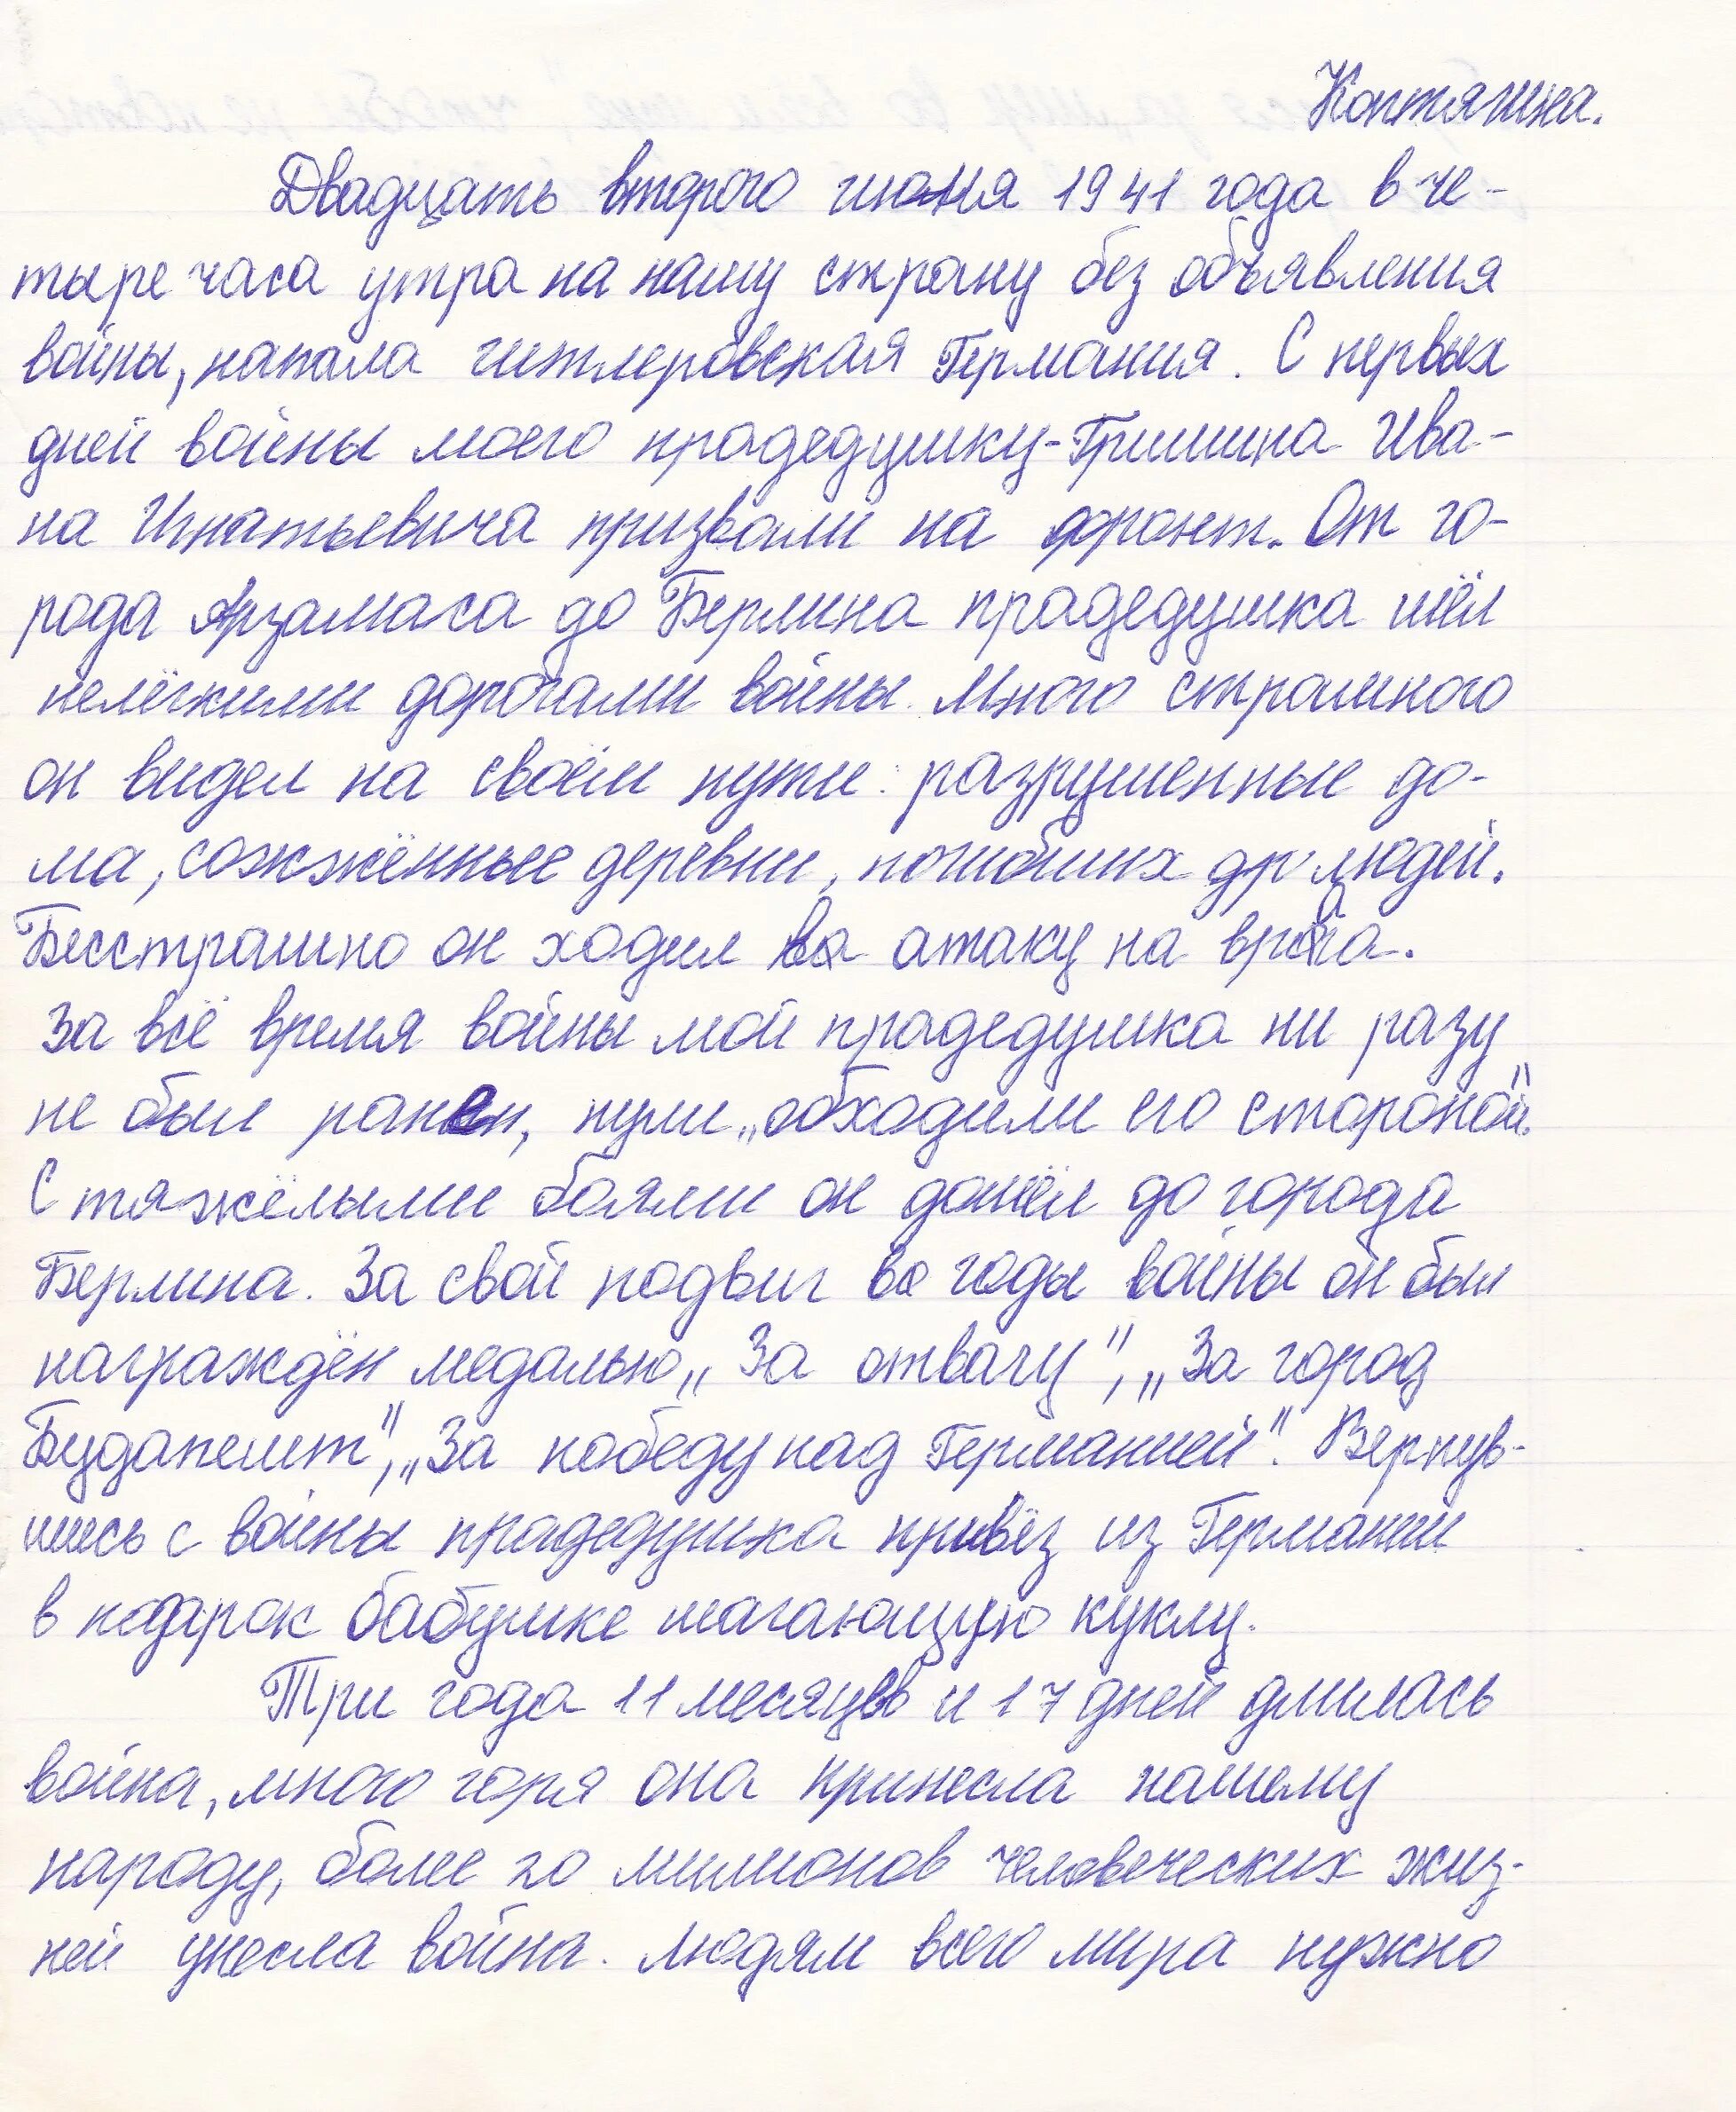 Коптягина.
Двадцать второго июня 1941 года в че-
тыре часа утра на нашу страну без объявления
войны, напала гитлеровская Германия. С первых
дней войны моего прадедушку-Гришина Ива-
на Игнатьевича призвали на фронт. От го-
рода Арзамаса до Берлина прадедушка шёл
нелёгкими дорогами войны. Много страшного
он видел на своём пути: разрушенные до-
ма, сожжённые деревни, погибших людей.
Бесстрашно он ходил в атаку на врага.
За всё время войны мой прадедушка ни разу
не был ранен, пули „обходили его стороной".
С тяжёлыми боями он дошёл до города
Берлина. За свой подвиг в годы войны он был
награждён медалью „За отвагу", „За город
Будапешт", „За победу над Германией". Вернув-
шись с войны прадедушка привёз из Германии
в подарок бабушке шагающую куклу.
Три года 11 месяцев и 17 дней длилась
война, много горя она принесла нашему
народу, более 20 милионов человеческих жиз-
ней унесла война. Людям всего мира нужно